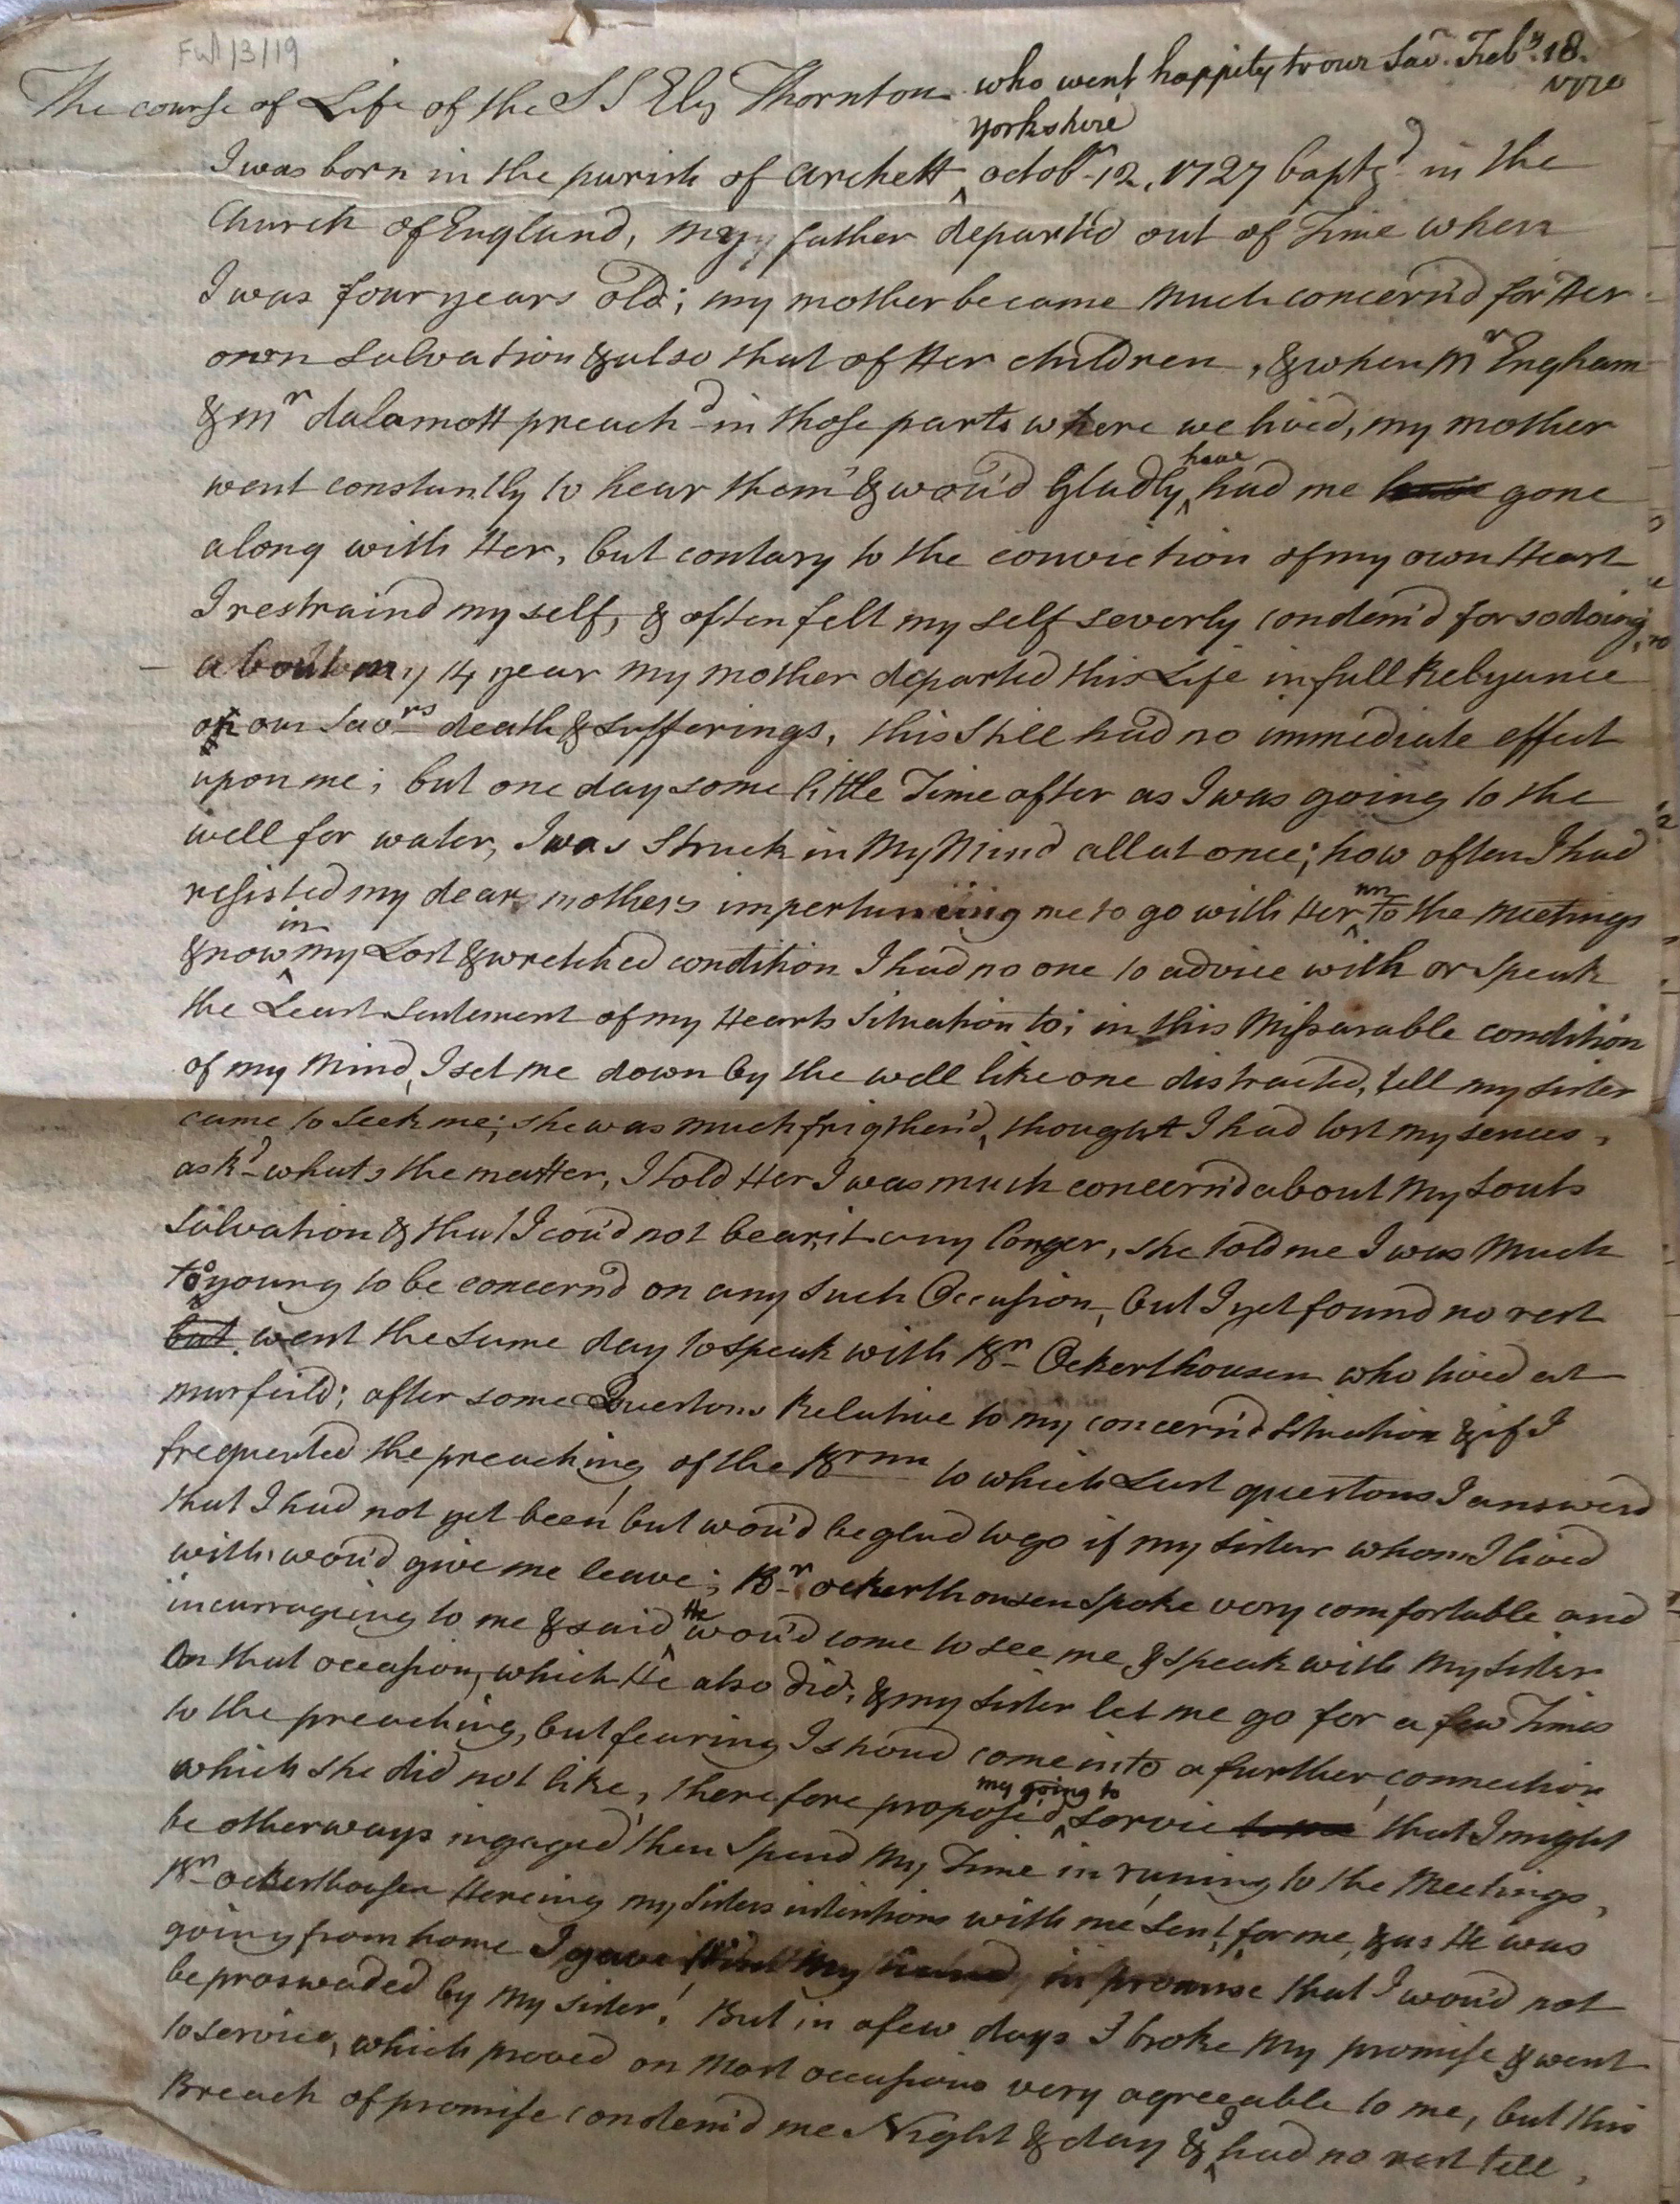 Ful/3/19
The course of Life of the S S Elis Thornton who went happily to our Savr. Feby. 18.
Yorkshire
I was born in the parish of Archett ^ octobr 12, 1727 baptzd in the
Church of England, my father departed out of Time when
I was four years old; my mother became Much concern'd for Her
own Salvation & also that of Her children, & when Mr Engham
& Mr dalamott preachd in those parts where we lived, my mother
have
went constantly to hear them & wou'd Gladly ^ had me have gone
along with Her, but contary to the conviction of my own Heart
I restraind my self, & often felt my self severly condem'd for so doing,
about my 14 year my mother departed this Life in full Relyance
on our Savrs death & sufferings, this still had no immediate effect
upon me; but one day some little Time after as I was going to the
well for water, I was Struck in My Mind all at once; how often I had
resisted my dear mothers importuneing me to go with Her ^ to the Meetings
in
& now ^ my Lost & wretched condition I had no one to advice with or speak
the Least Sentement of my Hearts Situation to; in this Missarable condition
of my Mind, I set me down by the well like one distracted, tell my sister
came to seek me; she was much frigthen'd, thought I had lost my sences,
askd whats the matter, I told Her I was much concern'd about My Souls
Salvation & that I cou'd not bear it any longer, she told me I was Much
to young to be concern'd on any such Occasion, but I yet found no rest
but went the same day to speak with Br Ockerthousen who lived at
murfeild; after some Questons Relative to my concern'd Situation & if I
frequented the preaching of the Brnn to which Last questons I answerd
that I had not yet been but wou'd be glad to go if my sister whom I lived
with wou'd give me leave; Br ockerthousen spoke very comfortable and
He
incurrageing to me & said ^ wou'd come to see me & speak with My Sister
On that occasion, which He also did, & my Sister let me go for a few Times
to the preaching, but fearing I shoud come into a further connection
my going to
which she did not like, therefore propose'd ^ servic that I might
be otherways ingaged then Spend My Time in runing to the Meetings,
Br ockerthousen Hereing my Sisters intentions with me sent for me, & as He was
going from home I gave Him My hand in promise that I wou'd not
be proswaded by my sister! But in a few days I broke My promise & went
to service, which proved on Most occasions very agreeable to me, but this
Breach of promise condem'd me Night & day & ^ I had no rest tell,